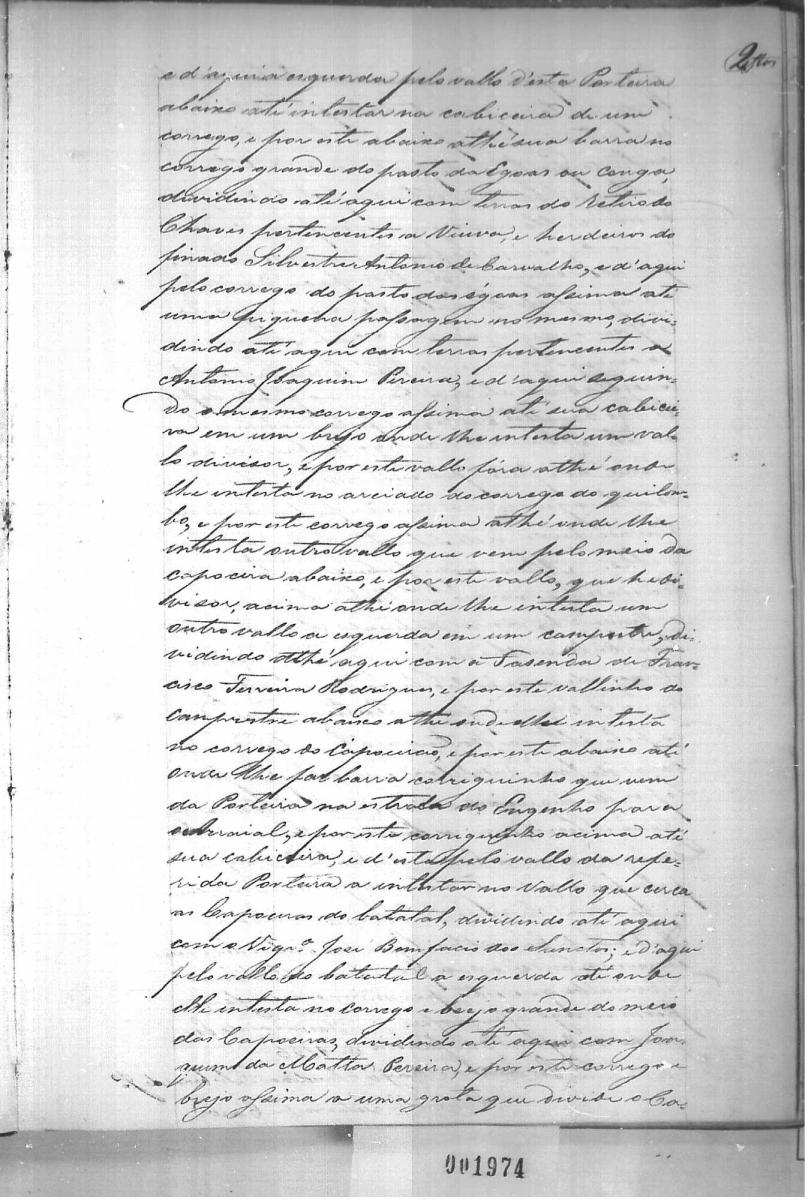 2
e d'aqui a esquerda pelo vallo d'esta Porteira
abaixo até intestar na cabiceira de um
corrego, e por este abaixo athé sua barra no
corrego grande do pasto das Egoas ou Conga,
dividindo até aqui com terras do Retiro do
Chaves pertencentes a Viuva, e herdeiros do
finado Silvestre Antonio de Carvalho, e d'aqui
pelo corrego do pasto das égoas assima até
uma piquena passagem no mesmo, divi-
dindo até aqui com terras pertencentes a
Antonio Joaquim Pereira, e d'aqui seguin-
do o mesmo corrego assima até sua cabicei-
ra em um brejo onde lhe intesta um val-
lo divisor, e por este vallo fóra athé onde
lhe intesta no do corrego do quilom-
bo, e por este corrego assima athé onde lhe
intesta outro vallo que vem pelo meio da
capoeira abaixo, e por este vallo, que he di-
visor, acima athé onde lhe intesta um
outro vallo a esquerda em um campestre, di-
vidindo athé aqui com a Fasenda de Fran-
cisco Ferreira Rodrigues, e por este vallinho do
campestre abaixo athe onde lhe intesta
no corrego do Capoeirão, e por este abaixo até
onde lhe faz barra corriguinho que vem
da Porteira na estrada do Engenho para
o Arraial, e por este corriguinho acima até
sua cabiceira, e d'esta pelo vallo da refe-
rida Porteira a intestar no Vallo que cerca
as Capoeiras do batatal, dividindo até aqui
com o Vigr.º José Bonifacio dos Sanctos; e d'aqui
pelo vallo do batatal a esquerda até onde
lhe intesta no corrego e brejo grande do meio
das Capoeiras, dividindo até aqui com Joa-
quim da Matta Pereira, e por este corrego e
brejo assima a uma grota que divide o Ca-
001974